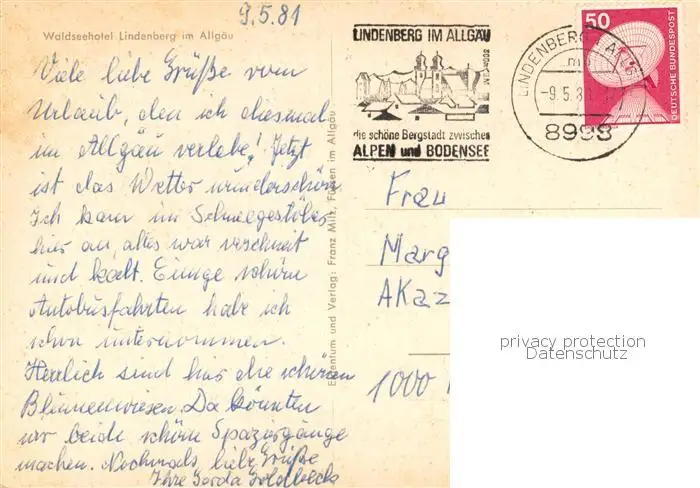 9.5.81
Waldseehotel Lindenberg im Allgäu
Viele liebe Grüße vom
Urlaub, den ich diesmal
im Allgäu verlebe! Jetzt
ist das Wetter wunderschön.
Ich kam im Schneegestöber
hier an, alles war verschneit
und kalt. Einige schöne
Autobusfahrten habe ich
schon unternommen.
Herrlich sind hier die schönen
Blumenwiesen. Da könnten
wir beide schöne Spaziergänge
machen. Nochmals liebe Grüße
Ihre Gerda Goldbeck
Eigentum und Verlag: Franz Milz, Füssen im Allgäu
LINDENBERG IM ALLGÄU
die schöne Bergstadt zwischen
ALPEN und BODENSEE
LINDENBERG
-9.5.81
8998
50
DEUTSCHE BUNDESPOST
Frau
Marg
Akaz
1000
privacy protection
Datenschutz